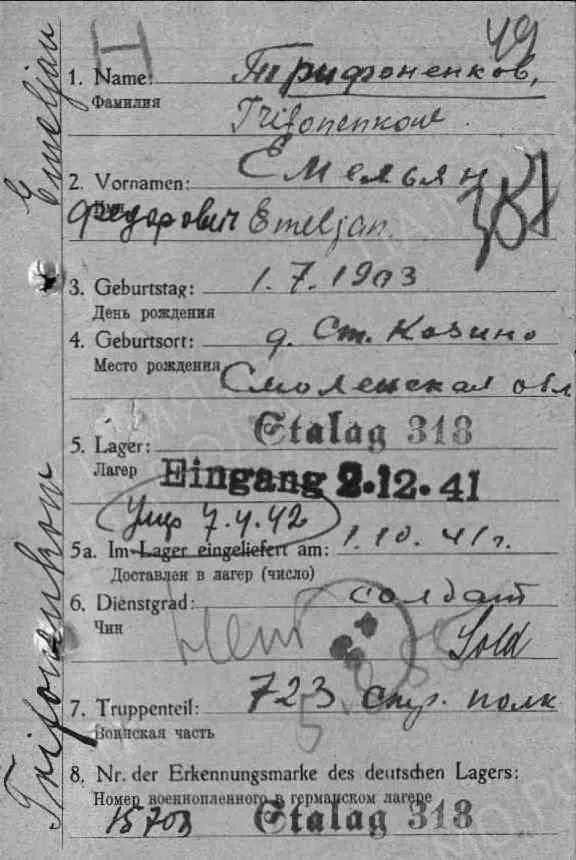 49
1. Name: Трифоненков,
Фамилия
Trifonenkow
2. Vornamen: Емельян
Федорович Emeljan
387
3. Geburtstag: 1.7.1903
День рождения
4. Geburtsort: д. Ст. Козино
Место рождения Смоленская обл
5. Lager: Stalag 318
Лагер Eingang 2.12.41
Умер 7.4.42
5a. Im Lager eingeliefert am: 1.10.41г.
Доставлен в лагер (число)
6. Dienstgrad: солдат
Чин Sold
7. Truppenteil: 723 стр. полк
Воинская часть
8. Nr. der Erkennungsmarke des deutschen Lagers:
Номер военнопленного в германском лагере
15703 Stalag 318
Trifonenkow Emeljan